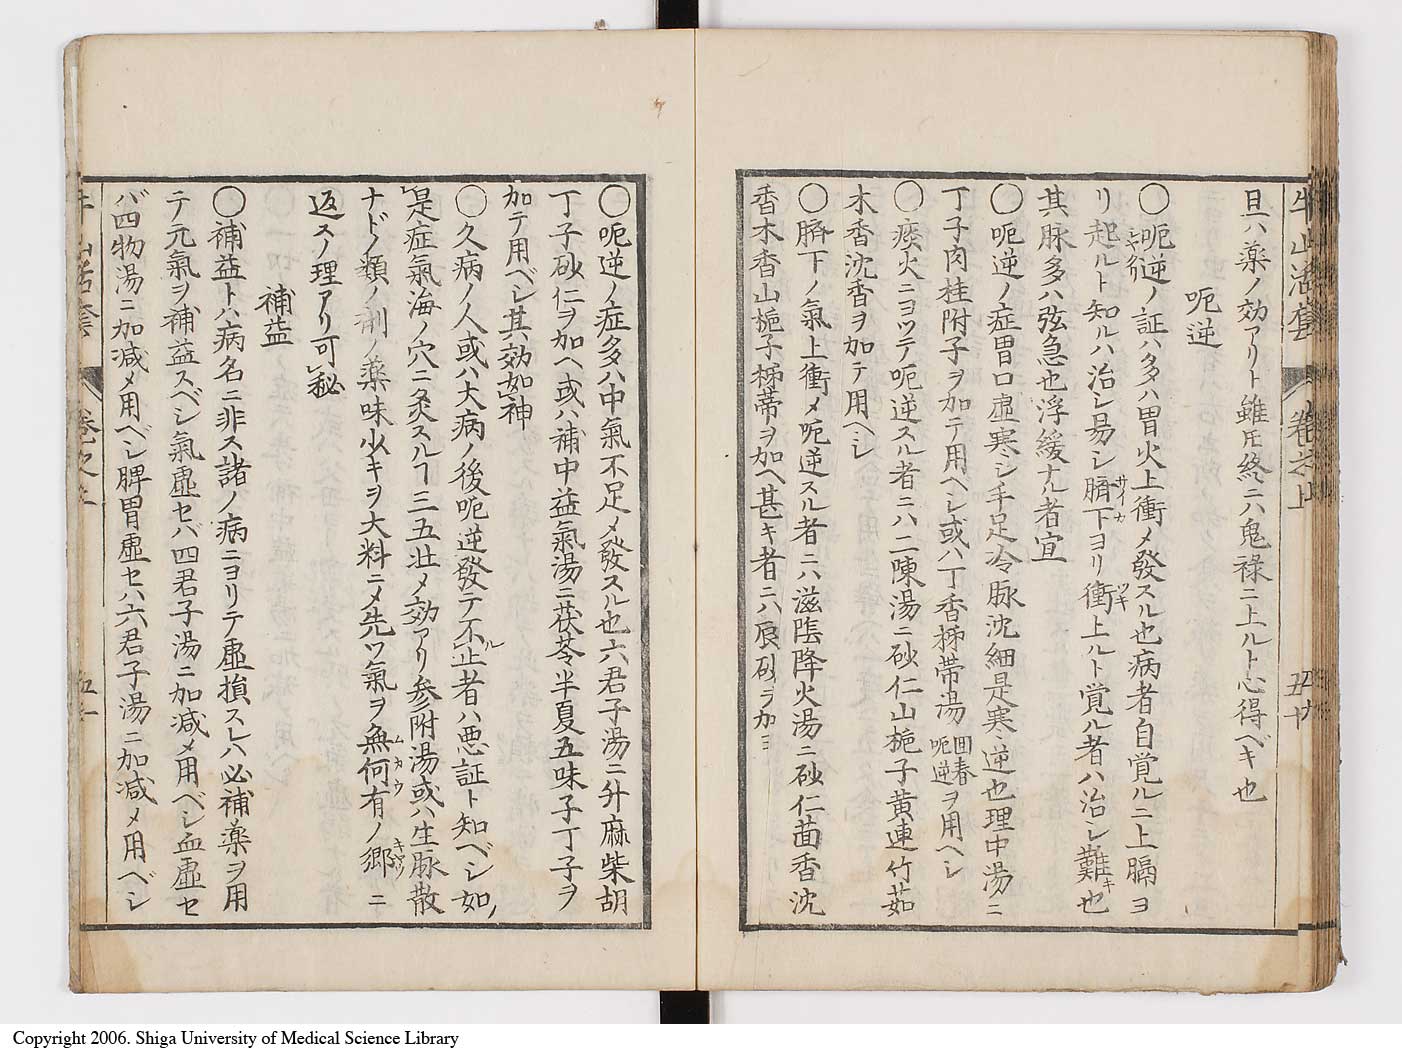 牛山活套 卷之上 四九 五十
旦ハ薬ノ効アリト雖𪜈終ニハ鬼祿ニ上ルト心得ベキ也
呃逆
〇呃逆ノ証ハ多ハ胃火上衝メ發スル也病者自覚ルニ上膈ヨ
リ起ルト知ルハ治シ易シ臍下ヨリ衝上ルト覚ル者ハ治シ難キ也
サイカ ツキ
其脉多ハ弦急也浮緩ナル者宜
〇呃逆ノ症胃口虚寒シ手足冷脉沈細是寒逆也理中湯ニ
丁子肉桂附子ヲ加テ用ヘシ或ハ丁香柹蒂湯回春呃逆ヲ用ヘシ
〇痰火ニヨツテ呃逆スル者ニハ二陳湯ニ砂仁山梔子黄連竹茹
木香沈香ヲ加テ用ヘシ
〇臍下ノ氣上衝メ呃逆スル者ニハ滋陰降火湯ニ砂仁茴香沈
香木香山梔子柹蒂ヲ加ヘ甚キ者ニハ辰砂ヲ加ヨ
〇呃逆ノ症多ハ中氣不足メ發スル也六君子湯ニ升麻柴胡
丁子砂仁ヲ加ヘ或ハ補中益氣湯ニ茯苓半夏五味子丁子ヲ
加テ用ベシ其効如神
〇久病ノ人或ハ大病ノ後呃逆發テ不ル止者ハ悪証ト知ベシ如ノ
是症氣海ノ穴ニ灸スルヿ三五壮メ効アリ参附湯或ハ生脉散
ナドノ類ノ剤ノ薬味少キヲ大料ニメ先ツ氣ヲ無何有ノ郷ニ
ムカウ キヤウ
返スノ理アリ可秘
補益
〇補益トハ病名ニ非ス諸ノ病ニヨリテ虚損スレハ必補薬ヲ用
テ元氣ヲ補益スベシ氣虚セバ四君子湯ニ加減メ用ベシ血虚セ
バ四物湯ニ加減メ用ベシ脾胃虚セハ六君子湯ニ加減メ用ベシ
Copyright 2006. Shiga University of Medical Science Library